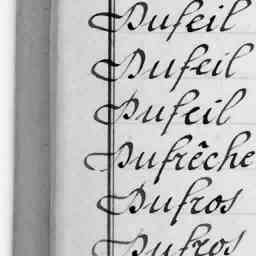 Dufeil
Dufeil
Dufeil
Dufrêche
Dufros
Dufros